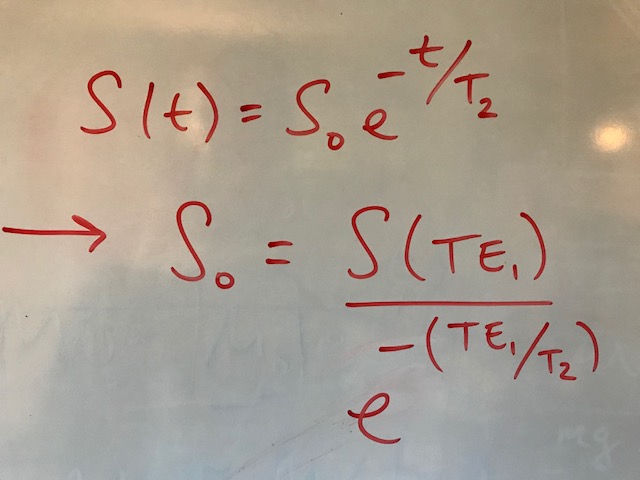 S(t) = S₀ e^(-t/T₂)
→ S₀ = S(TE₁) / e^(-(TE₁/T₂))
mg